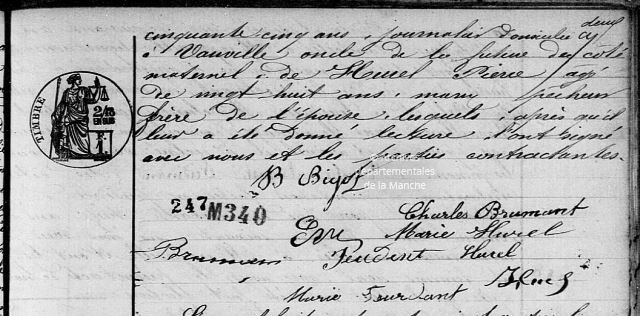 deux
cinquante cinq ans, journalier domicilié
à Vauville, oncle de la future du coté
maternel; de Hurel Pierre agé
de vingt huit ans, marin pêcheur
frère de l'épouse, lesquels, après qu'il
leur a été donné lecture, l'ont signé
avec nous et les parties contractantes.
B Bigot
départementales
de la Manche
TIMBRE
247 M340
Charles Brumant
Marie Hurel
Jeudent Hurel
Marie Jourdant